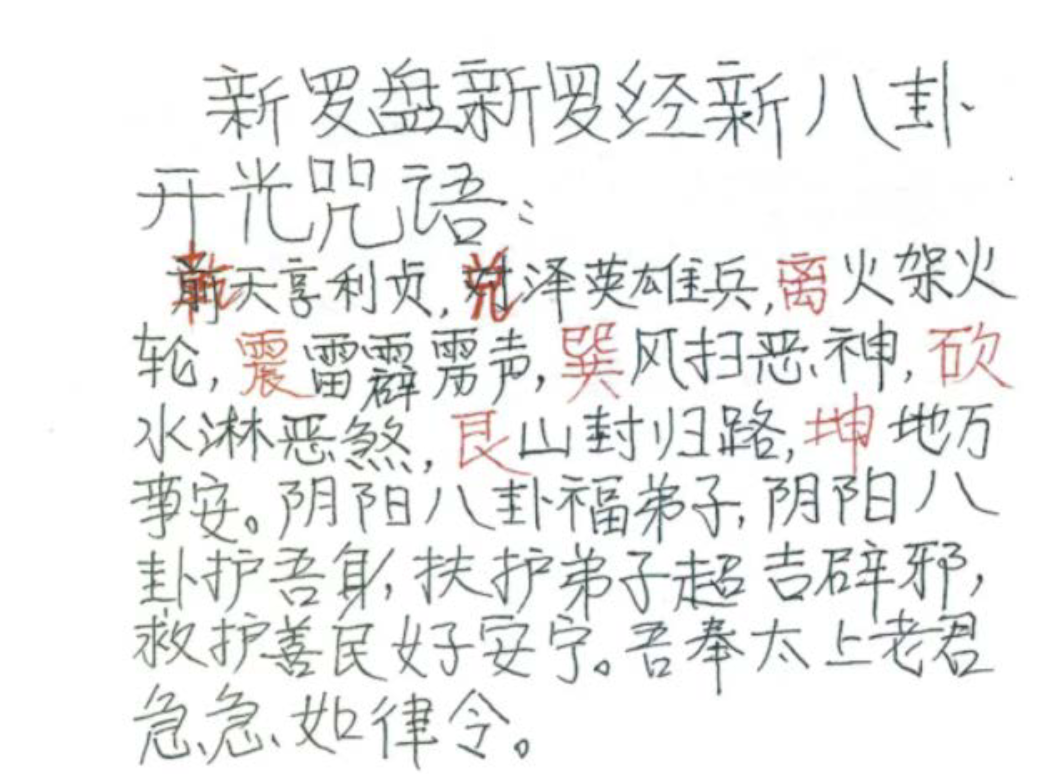 新罗盘新罗经新八卦
开光咒语:
乾天亨利贞,兑泽英雄兵,离火架火
轮,震雷霹雳声,巽风扫恶神,砍
水淋恶煞,艮山封归路,坤地万
事安。阴阳八卦福弟子,阴阳八
卦护吾身,扶护弟子超吉辟邪,
救护善民好安宁。吾奉太上老君
急急如律令。